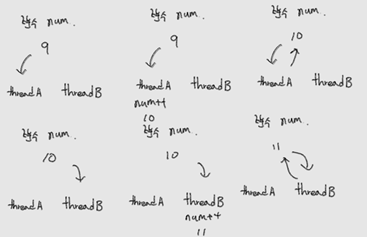 변수 num.
9
thread A thread B
변수 num.
9
thread A thread B
num++
10
변수 num.
10
thread A thread B
변수 num.
10
thread A thread B
변수 num.
10
thread A thread B
num++
11
변수 num.
11
thread A thread B